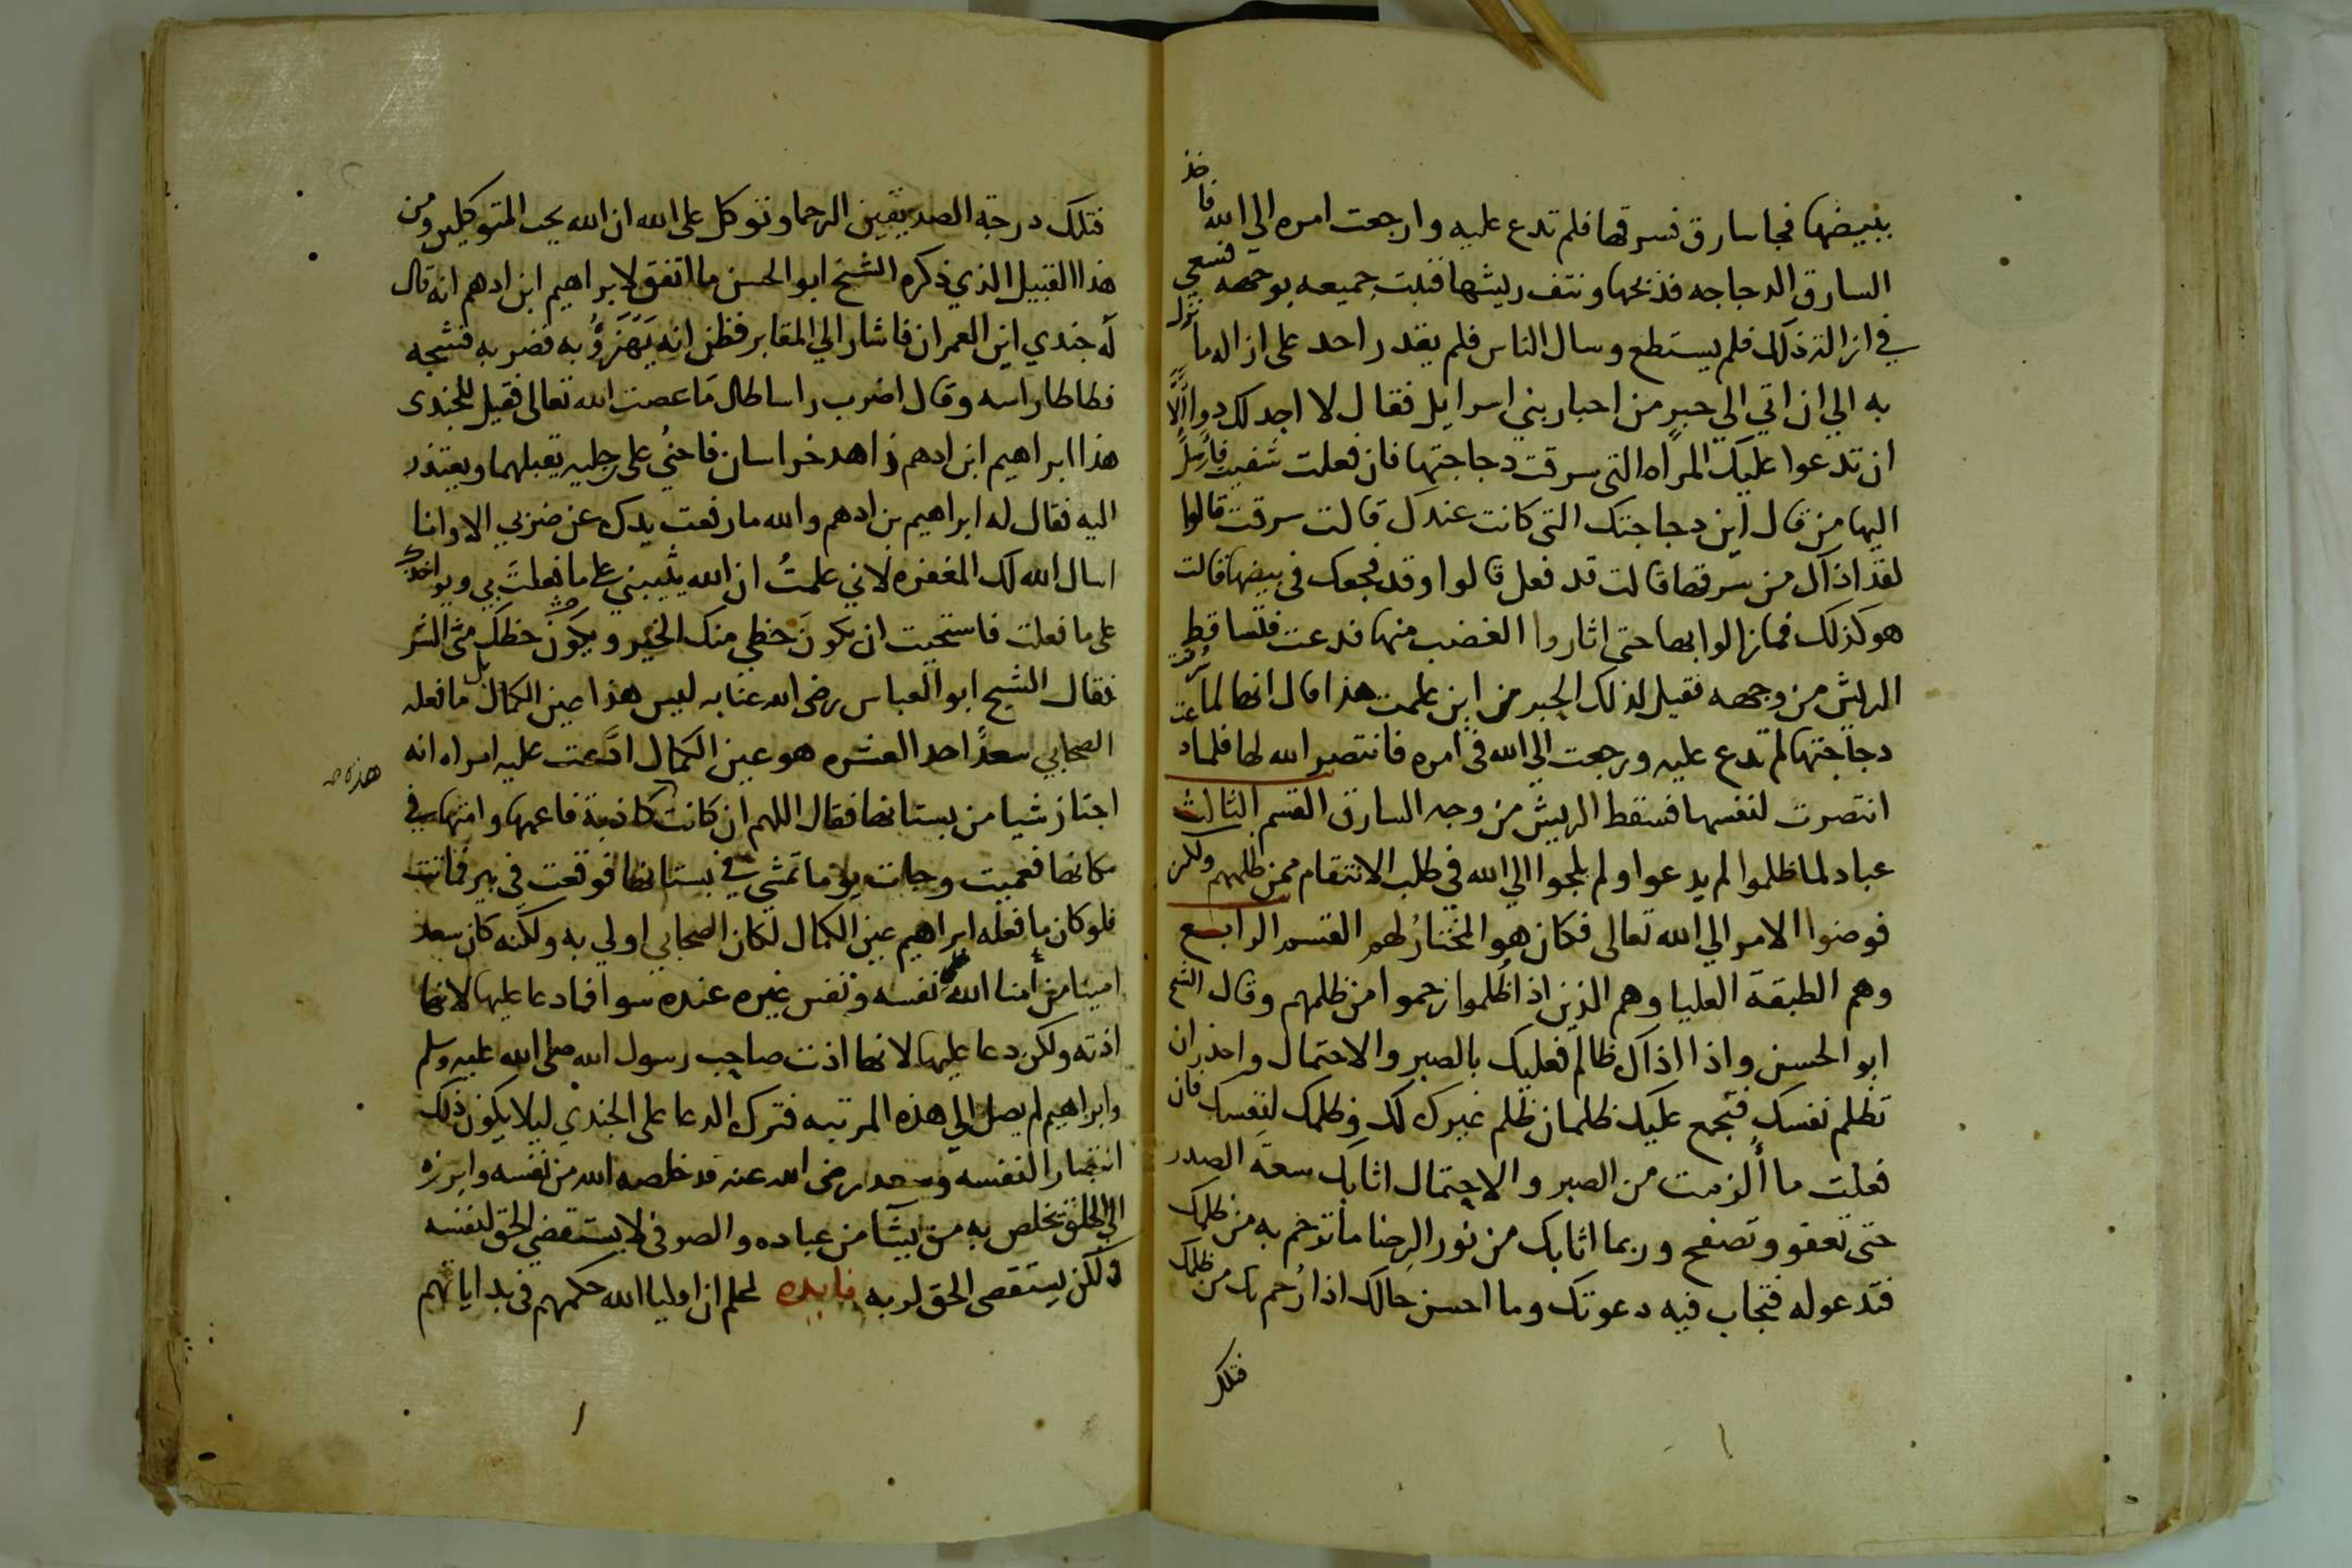 ببيضها فجا سارق فسرقها فلم تدع عليه وارجعت امره الي الله فاخذ
السارق الدجاجه فذبحها ونتف ريشها فنبت جميعه بوجهه فسعي
في ازالة ذلك فلم يستطع وسال الناس فلم يقدر احد على ازاله ما نزل
به الي ان اتي الي حبر من احبار بني اسرايل فقال لا اجد لك دوا الا
ان تدعوا عليك المراه التي سرقت دجاجتها فان فعلت شفيت فارسل
اليها من قال اين دجاجتك التي كانت عندك قالت سرقت قالوا
لقد اذاك من سرقها قالت قد فعل قالوا وقد فجعك في بيضها قالت
هو كذلك فما زالوا بها حتى اثاروا الغضب منها فدعت فتساقط
الريش من وجهه فقيل لذلك الحبر من اين علمت هذا قال انها لما سرقت
دجاجتها لم تدع عليه ورجعت الي الله في امره فانتصر الله لها فلما دعت
انتصرت لنفسها فسقط الريش من وجه السارق القسم الثالث
عباد لما ظلموا لم يدعوا ولم يلجوا الي الله في طلب الانتقام ممن ظلمهم ولكن
فوضوا الامر الي الله تعالى فكان هو المختار لهم القسم الرابع
وهم الطبقة العليا وهم الذين اذا ظلموا رحموا من ظلمهم وقال الشيخ
ابو الحسن واذا اذاك ظالم فعليك بالصبر والاحتمال واحذر ان
تظلم نفسك فتجمع عليك ظلمان ظلم غيرك لك وظلمك لنفسك فان
فعلت ما الزمت من الصبر والاحتمال اثابك سعة الصدر
حتى تعفو وتصفح وربما اثابك من نور الرضا ما ترحم به من ظلمك
فتدعو له فتجاب فيه دعوتك وما احسن حالك اذا رحم بك من ظلمك
فتلك
فتلك درجة الصديقين الرحما وتوكل على الله ان الله يحب المتوكلين ومن
هذا القبيل الذي ذكره الشيخ ابو الحسن ما اتفق لابراهيم ابن ادهم انه قال
له جندي اين العمران فاشار الي المقابر فظن انه يهزؤ به فضربه فشجه
فطاطا راسه وقال اضرب راسا طال ما عصت الله تعالى فقيل للجندي
هذا ابراهيم ابن ادهم زاهد خراسان فاحني على رجليه يقبلهما ويعتذر
اليه فقال له ابراهيم بن ادهم والله ما رفعت يدك عن ضربي الا وانا
اسال الله لك المغفره لاني علمت ان الله يثيبني على ما فعلت بي ويواخذك
على ما فعلت فاستحيت ان يكون حظي منك الخير ويكون حظك مني الشر
فقال الشيخ ابو العباس رضي الله عنا به ليس هذا عين الكمال بل ما فعله
الصحابي سعد احد العشره هو عين الكمال ادعت عليه امراه انه
اجتاز شيا من بستانها فقال اللهم ان كانت هذه كاذبة فاعمها وامتها في
مكانها فعميت وجات يوما تمشي في بستانها فوقعت في بير فماتت
فلو كان ما فعله ابراهيم عين الكمال لكان الصحابي اولي به ولكنه كان سعد
امينا من امنا الله نفسه ونفس غيره عنده سوا فما دعا عليها لانها
اذته ولكن دعا عليها لانها اذت صاحب رسول الله صلى الله عليه وسلم
وابراهيم لم يصل الي هذه المرتبه فترك الدعا على الجندي ليلا يكون ذلك
انتصارا لنفسه وسعد رضي الله عنه قد خلصه الله من نفسه وابرزه
الي الخلق تخلص به من يشا من عباده والصوفي لا يستقضي الحق لنفسه
ولكن يستقضي الحق لربه فايده لعلم ان اوليا الله حكمهم في بداياتهم